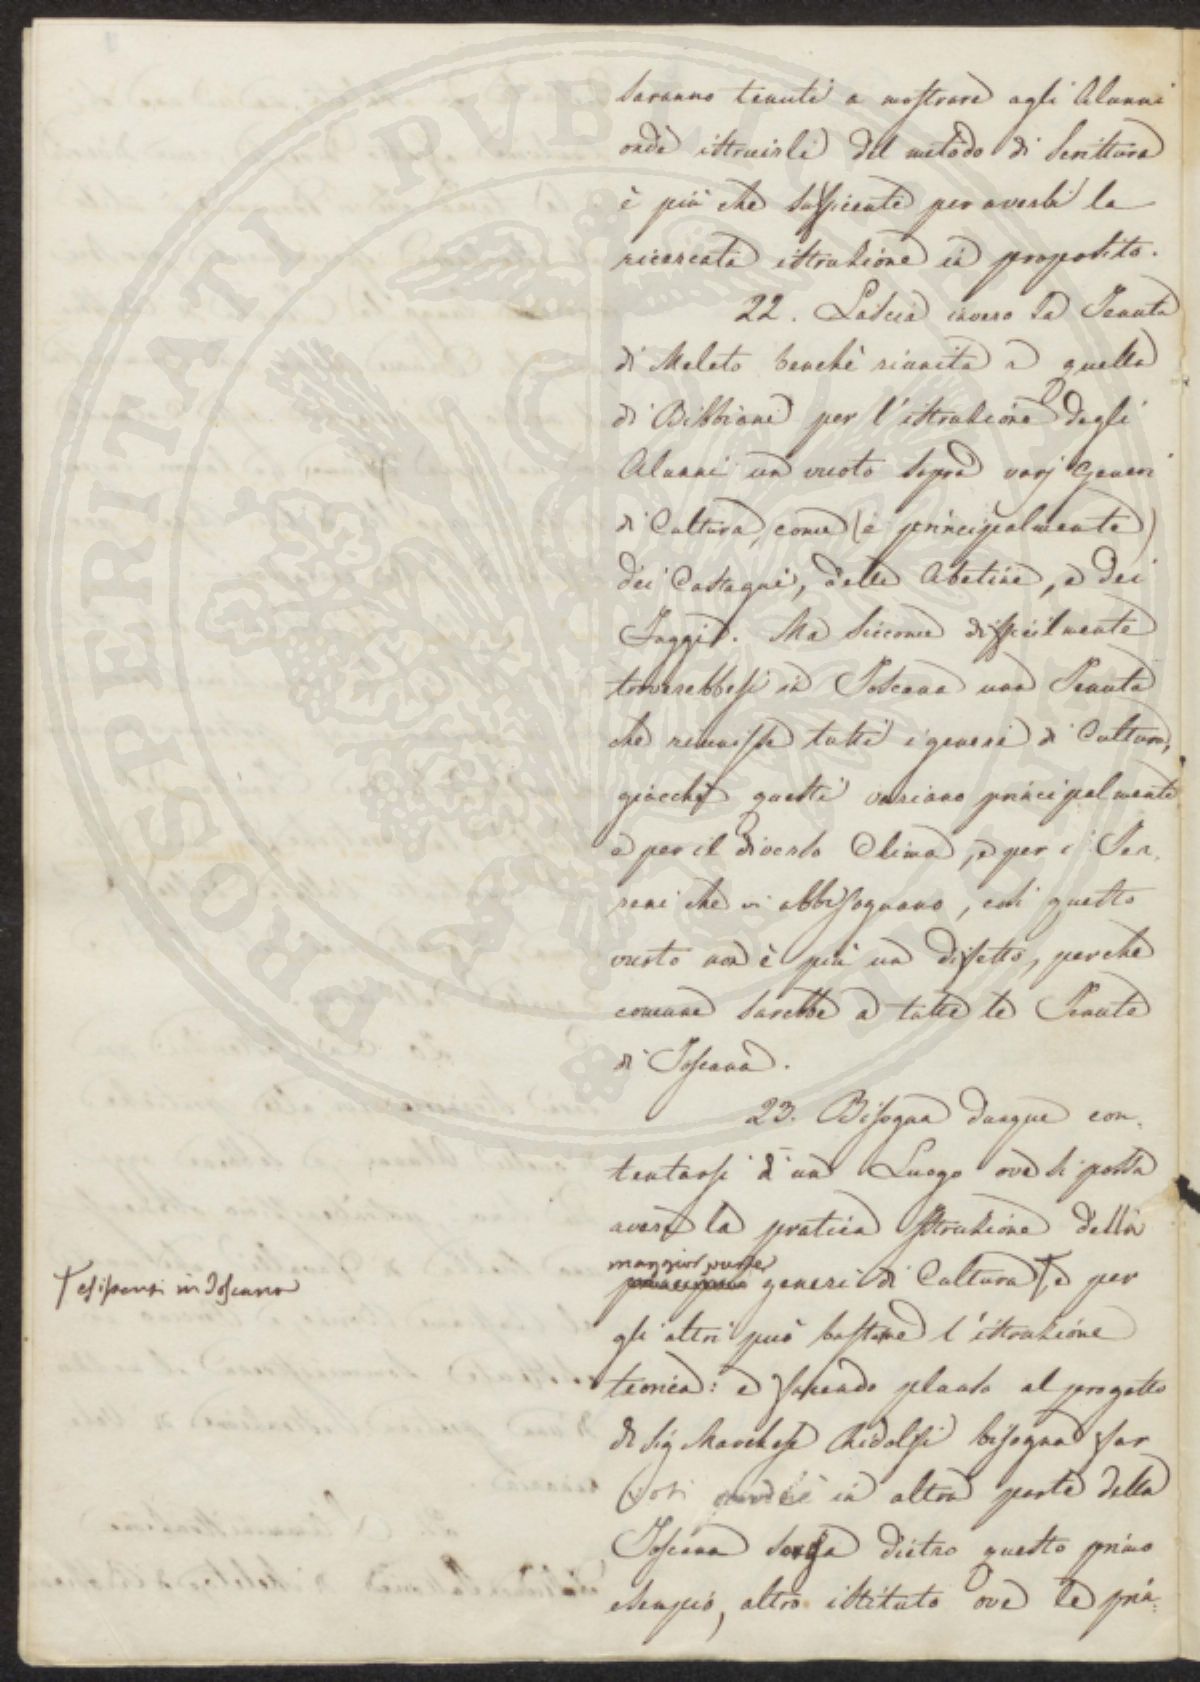 saranno tenuti a mostrare agli Alunni
onde istruirli del metodo di Scrittura
è più che sufficiente per aversi la
ricercata istruzione in proposito.
22. Lascia invero la Tenuta
di Meleto benchè riunita a quella
di Bibbiani per l'istruzione degli
Alunni un vuoto sopra varj Generi
di Cultura, come (e principalmente)
dei Castagni, delle Abetine, e dei
Faggi. Ma siccome difficilmente
troverebbesi in Toscana una Tenuta
che riunisse tutti i generi di Cultura,
giacchè questi variano principalmente
e per il diverso Clima, e per i Ter-
reni che vi abbisognano, così questo
vuoto non è più un difetto, perchè
comune sarebbe a tutte le Tenute
di Toscana.
23. Bisogna dunque con-
tentarsi d'un Luogo ove si possa
avere la pratica Istruzione della
maggior parte
generi di Cultura † e per
† esistenti in Toscana
gli altri può bastare l'istruzione
teorica: e facendo plauso al progetto
di Sig Marchese Ridolfi bisogna far
Voti perchè in altra parte della
Toscana sorga dietro questo primo
esempio, altro istituto ove le prin-
PROSPERITATI PUBLICAE